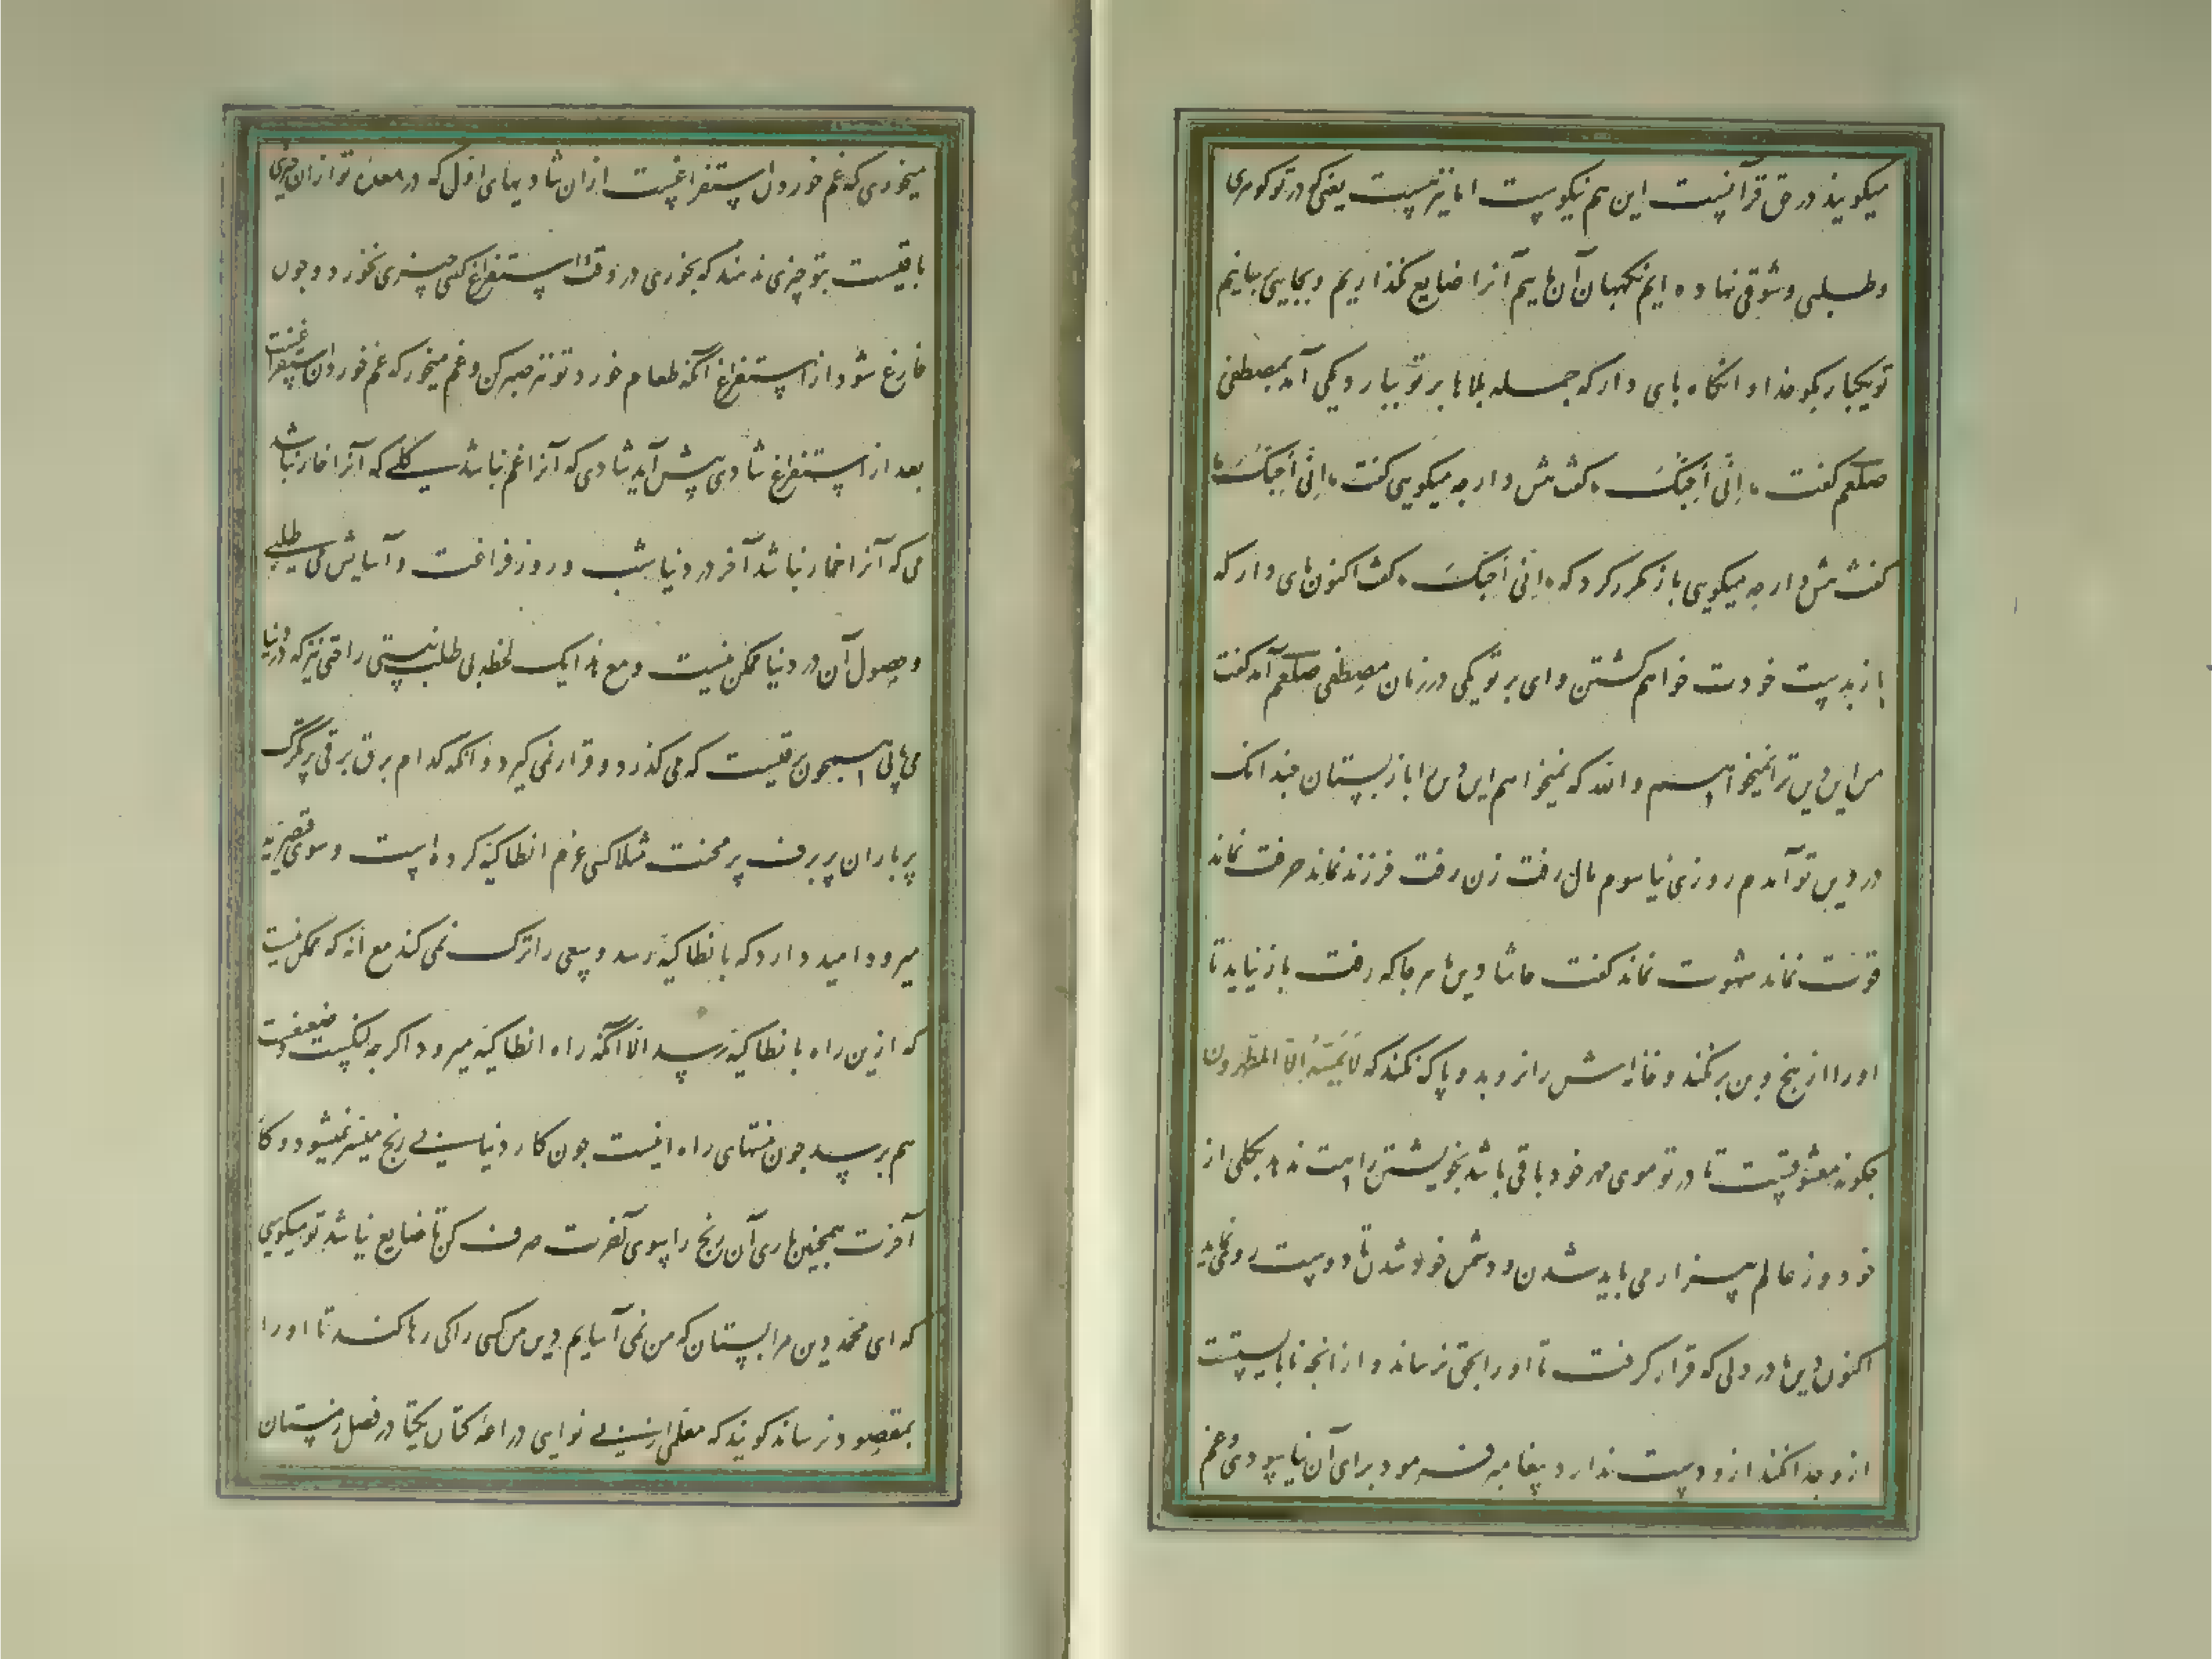 میکویند در حق قرآنست این هم نیکوست اما نیز نیست یعنی که در تو کوهری
و طلبی و شوقی نهاده ایم نکهبان آن ماییم آنرا ضایع نکذاریم و بجایی برسانیم
تو یکبار بکو خدا و انکاه پای دار که جمله بلاها بر تو ببارد یکی آمد بمصطفی
صلعم کفت انی احبک کفت هش دار چه میکویی کفت انی احبک
کفت هش دار چه میکویی باز مکرر کرد که انی احبک کفت اکنون پای دار که
بازبدست خودت خواهم کشتن وای بر تو یکی در زمان مصطفی صلعم آمد کفت
من این دین ترا نمیخواهم والله که نمیخواهم این دین را باز بستان چندانک
در دین تو آمدم روزی نیاسودم مال رفت زن رفت فرزند نماند حرمت نماند
قوت نماند شهوت نماند کفت حاشا دین ما هر جا که رفت باز نیاید تا
اورا از بیخ و بن برنکند و خانه اش را نروبد و پاک نکند که لا یمسه الا المطهرون
چکونه معشوقیست تا در تو موی مهر خود باقی باشد بخویشتن راهت ندهد بکلی از
خود و ز عالم بیزار می باید شدن و دشمن خود شدن تا دوست رو نماید
اکنون دین ما در دلی که قرار کرفت تا اورا بحق نرساند و از انچه نابایست
ازو جدا نکند ازو دست ندارد پیغامبر فرمود برای آن نیاسودی و غم
میخوری که غم خوردن استفراغیست ازان شادیهای اول که در معده تو ازان چیزی
باقیست بتو چیزی ندهند که بخوری در وقت استفراغ کسی چیزی نخورد و چون
فارغ شود از استفراغ آنکه طعام خورد تو نیز صبر کن و غم میخور که غم خوردن استفراغیست
بعد از استفراغ شادی پیش آید شادی که آنرا غم نباشد کلی که آنرا خار نباشد
می که آنرا خمار نباشد آخر در دنیا شب و روز فراغت و آسایش می طلبی
و حصول آن در دنیا ممکن نیست و مع هذا یک لحظه بی طلب نیستی راحتی نیز که در دنیا
می یابی همچون برقیست که می کذرد و قرار نمی کیرد و آنکه کدام برق برقی پر تکرک
پر باران پر برف پر محنت مثلا کسی عزم انطاکیه کرده است و سوی قیصریه
میرود امید دارد که بانطاکیه رسد و سعی را ترک نمی کند مع انه که ممکن نیست
که ازین راه بانطاکیه رسد الا آنکه راه انطاکیه میرود اکرچه لنکست و ضعیفست
هم برسد چون منتهای راه اینست چون کار دنیا بی رنج میسر نمیشود و کار
آخرت همچنین باری آن رنج را سوی آخرت صرف کن تا ضایع نباشد تو میکویی
که ای محمد دین مرا بستان که من نمی آسایم دین من کسی را کی رها کند تا اورا
بمقصود نرساند کویند که معلمی از بی نوایی دراعه کتان یکتا در فصل زمستان